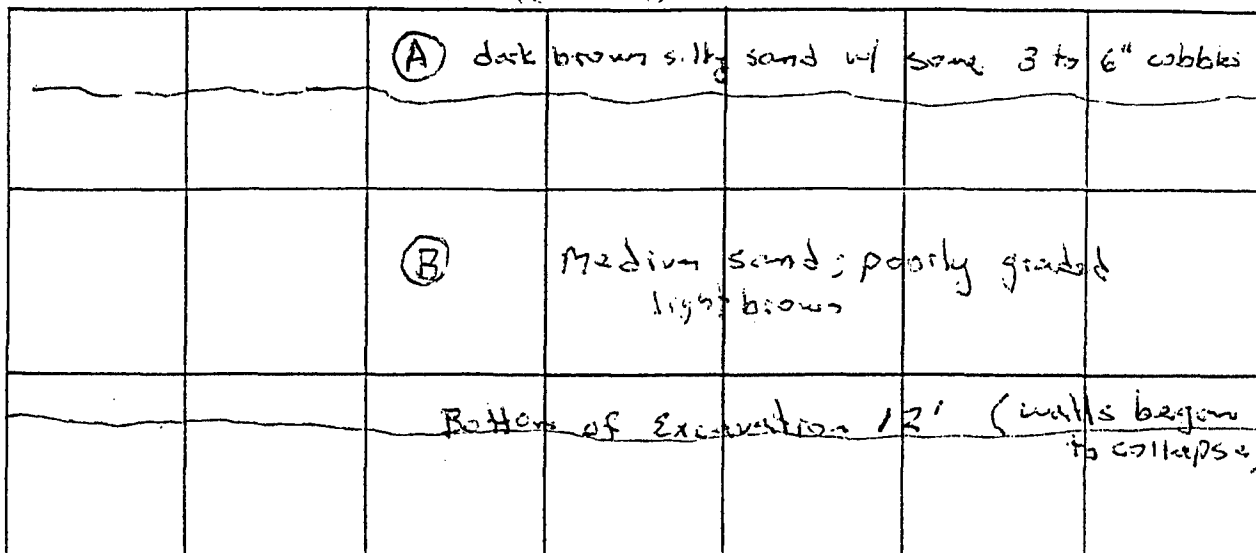 A dark brown silty sand w/ some 3 to 6" cobbles
B Medium sand; poorly graded
light brown
Bottom of Excavation 12' (walls began
to collapse